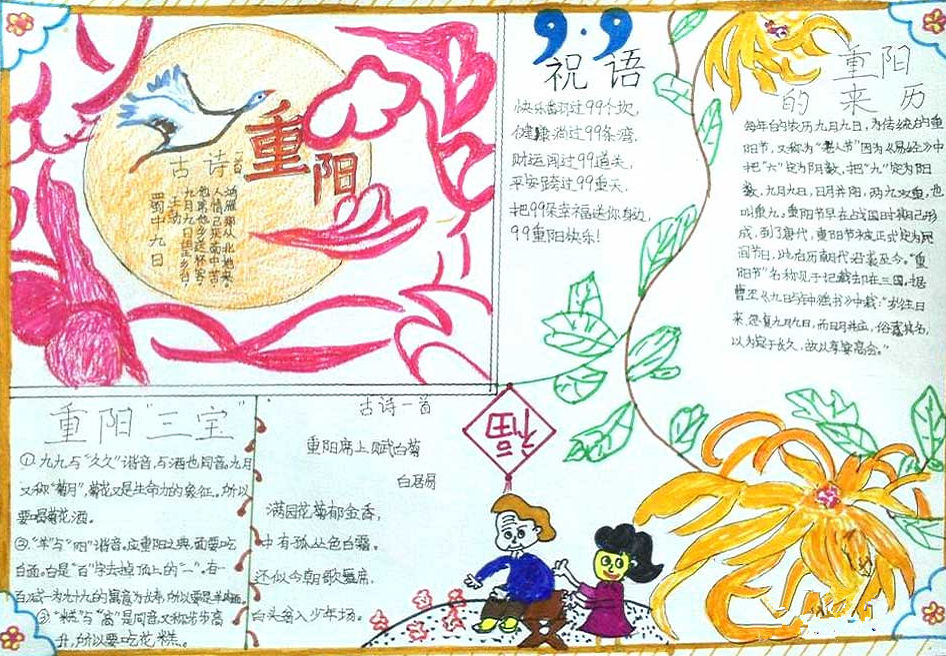 重阳
古诗一首
蜀中九日
王勃
九月九日望乡台,
他席他乡送客杯。
人情已厌南中苦,
鸿雁那从北地来。
9.9
祝语
快乐翻过99个坎,
健康淌过99条湾,
财运闯过99道关,
平安跨过99重天,
把99朵幸福送你身边,
99重阳快乐!
重阳
的来历
每年的农历九月九日,为传统的重
阳节,又称为“老人节”因为《易经》中
把“六”定为阴数,把“九”定为阳
数,九月九日,日月并阳,两九双重,也
叫重九,重阳节早在战国时期已形
成,到了唐代,重阳节被正式定为民
间节日,此后历朝代沿袭至今。“重
阳节”名称见于记载却在三国,据
曹丕《九日与钟繇书》中载:“岁往月
来,忽复九月九日,而日月并应,俗嘉其名,
以为宜于长久,故以享宴高会。”
重阳“三宝”
①、九九与“久久”谐音,与酒也同音,九月
又称“菊月”,菊花又是生命力的象征。所以
要喝菊花酒。
②、“羊”与“阳”谐音。应重阳之典,面要吃
白面,白是“百”字去掉顶上的“一”。有一
百减一为九十九的寓意为长寿,所以要吃羊肉面。
③“糕”与“高”是同音,又称步步高
升,所以要吃花糕。
古诗一首
重阳席上赋白菊
白居易
满园花菊郁金香,
中有孤丛色白霜。
还似今朝歌舞席,
白头翁入少年场。
福